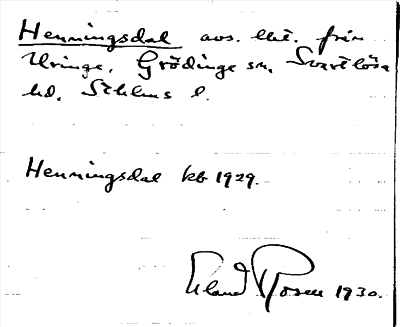 Henningsdal avs. lht. från
Uringe, Grödinge sn, Svartlösa
hd. Sthlms l.
Henningsdal kb 1929.
Eland Rosen 1930.